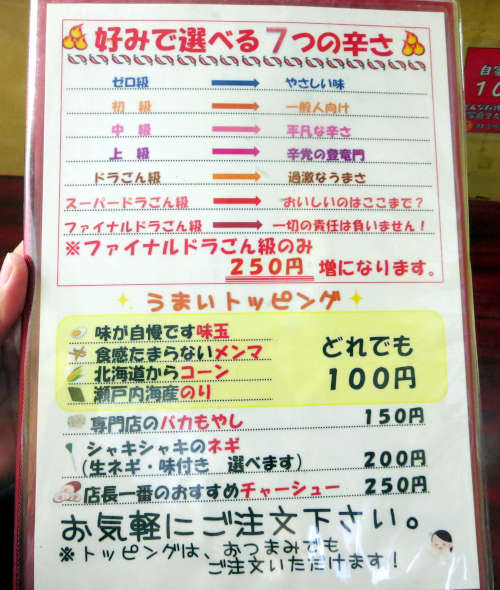 好みで選べる7つの辛さ
ゼロ級 → やさしい味
初 級 → 一般人向け
中 級 → 平凡な辛さ
上 級 → 辛党の登竜門
ドラごん級 → 過激なうまさ
スーパードラごん級 → おいしいのはここまで？
ファイナルドラごん級 → 一切の責任は負いません！
※ファイナルドラごん級のみ
250円 増になります。
うまいトッピング
味が自慢です味玉
食感たまらないメンマ
北海道からコーン
瀬戸内海産のり
どれでも
100円
専門店のバカもやし 150円
シャキシャキのネギ
(生ネギ・味付き 選べます) 200円
店長一番のおすすめチャーシュー 250円
お気軽にご注文下さい。
※トッピングは、おつまみでも
ご注文いただけます！